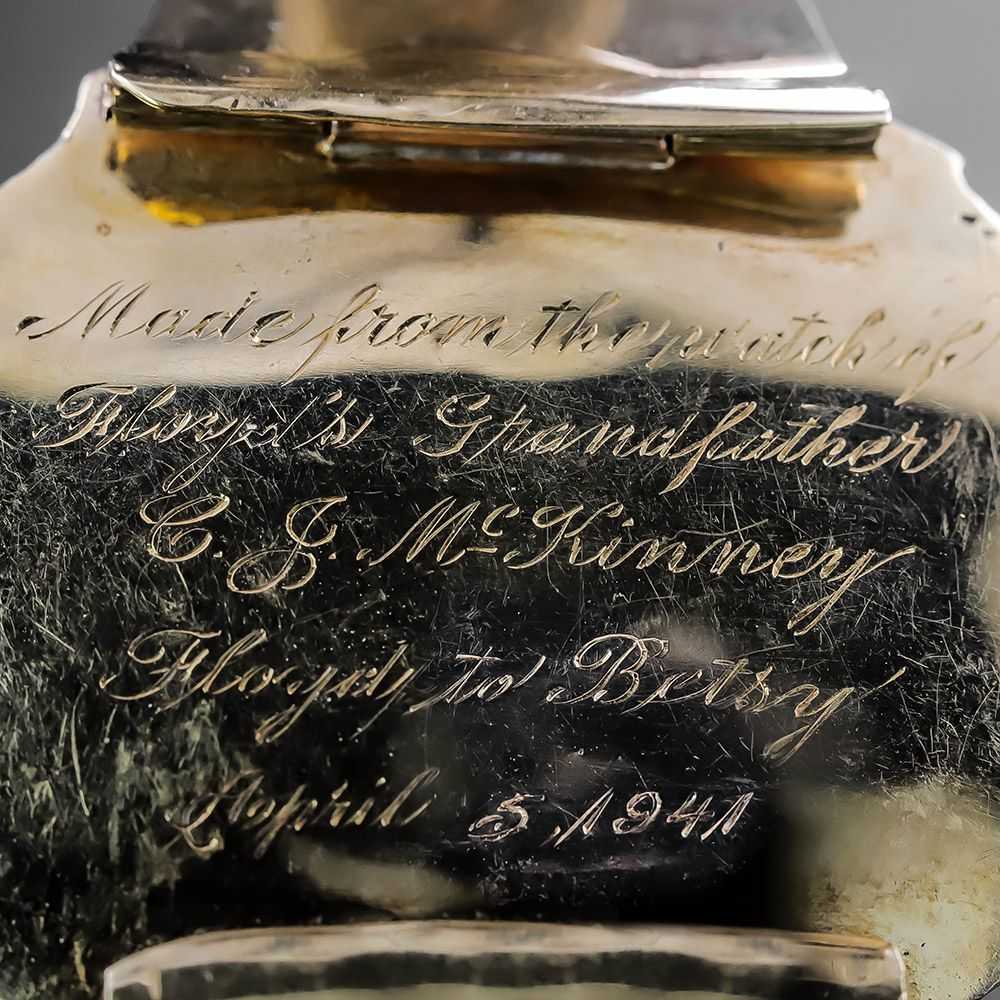 Made from the watch of
Floyd's Grandfather
C. J. McKinney
Floyd to Betsy
April 5, 1941